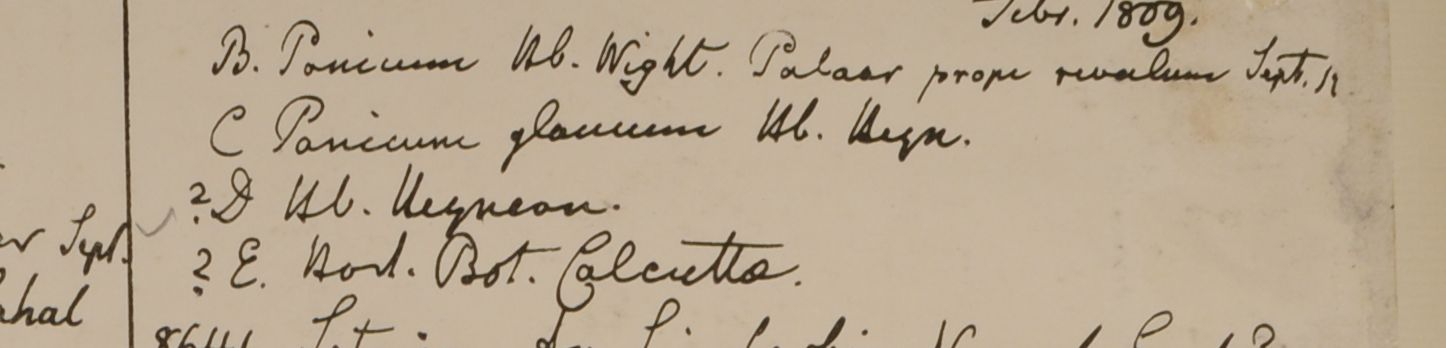 Febr. 1809.
B. Panicum Hb. Wight. Palaar prope rivulum Sept.
C Panicum glaucum Hb. Heyn.
? D Hb. Heynean.
er Sept.
? E. Hort. Bot. Calcutta.
ahal